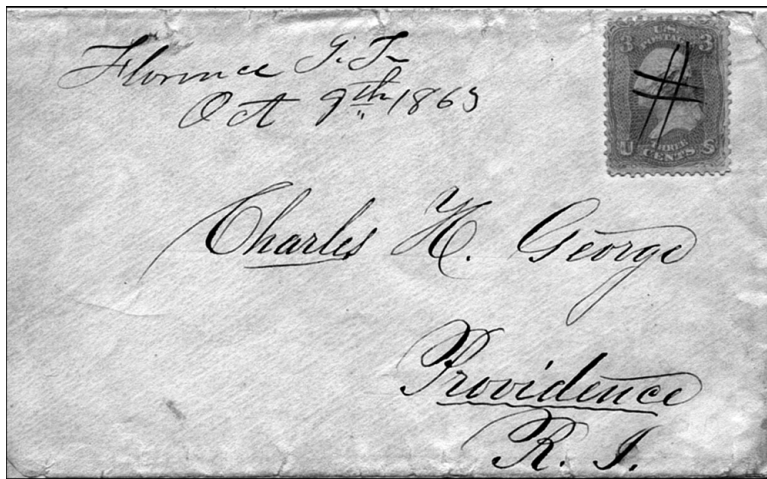 Florence I. T.
Oct 9th 1863
U.S.
3 POSTAGE 3
U THREE S
CENTS
Charles H. George
Providence
R. I.